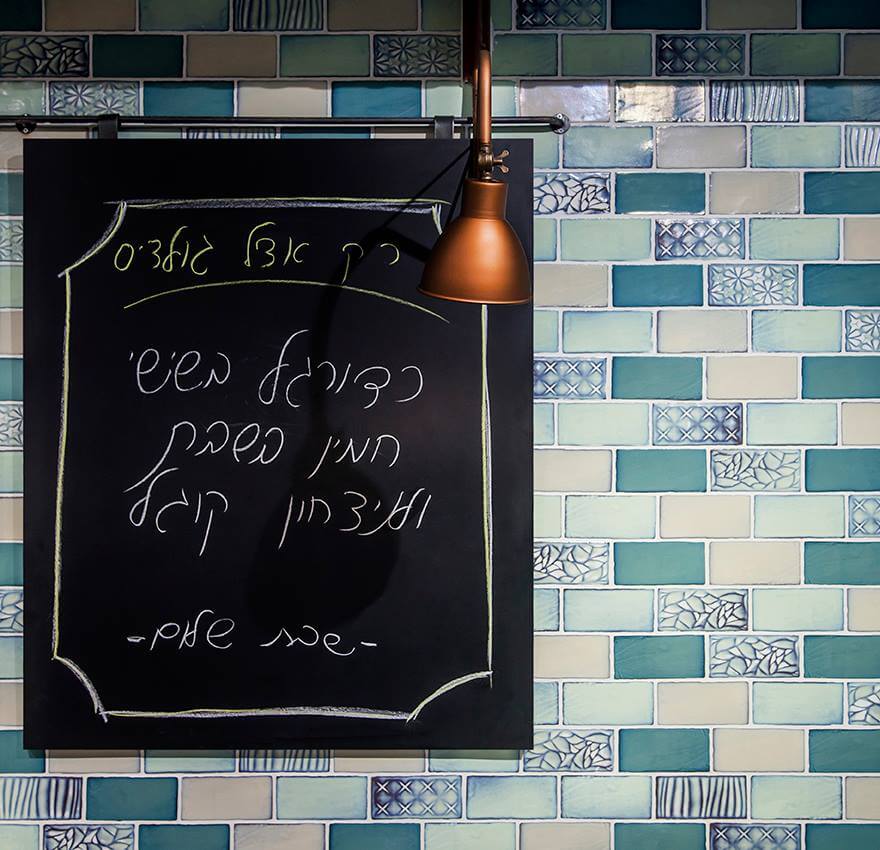 רק אצל גולדיס
כדורגל בשישי
חמין בשבת
ולניצחון קוגל
-שבת שלום-